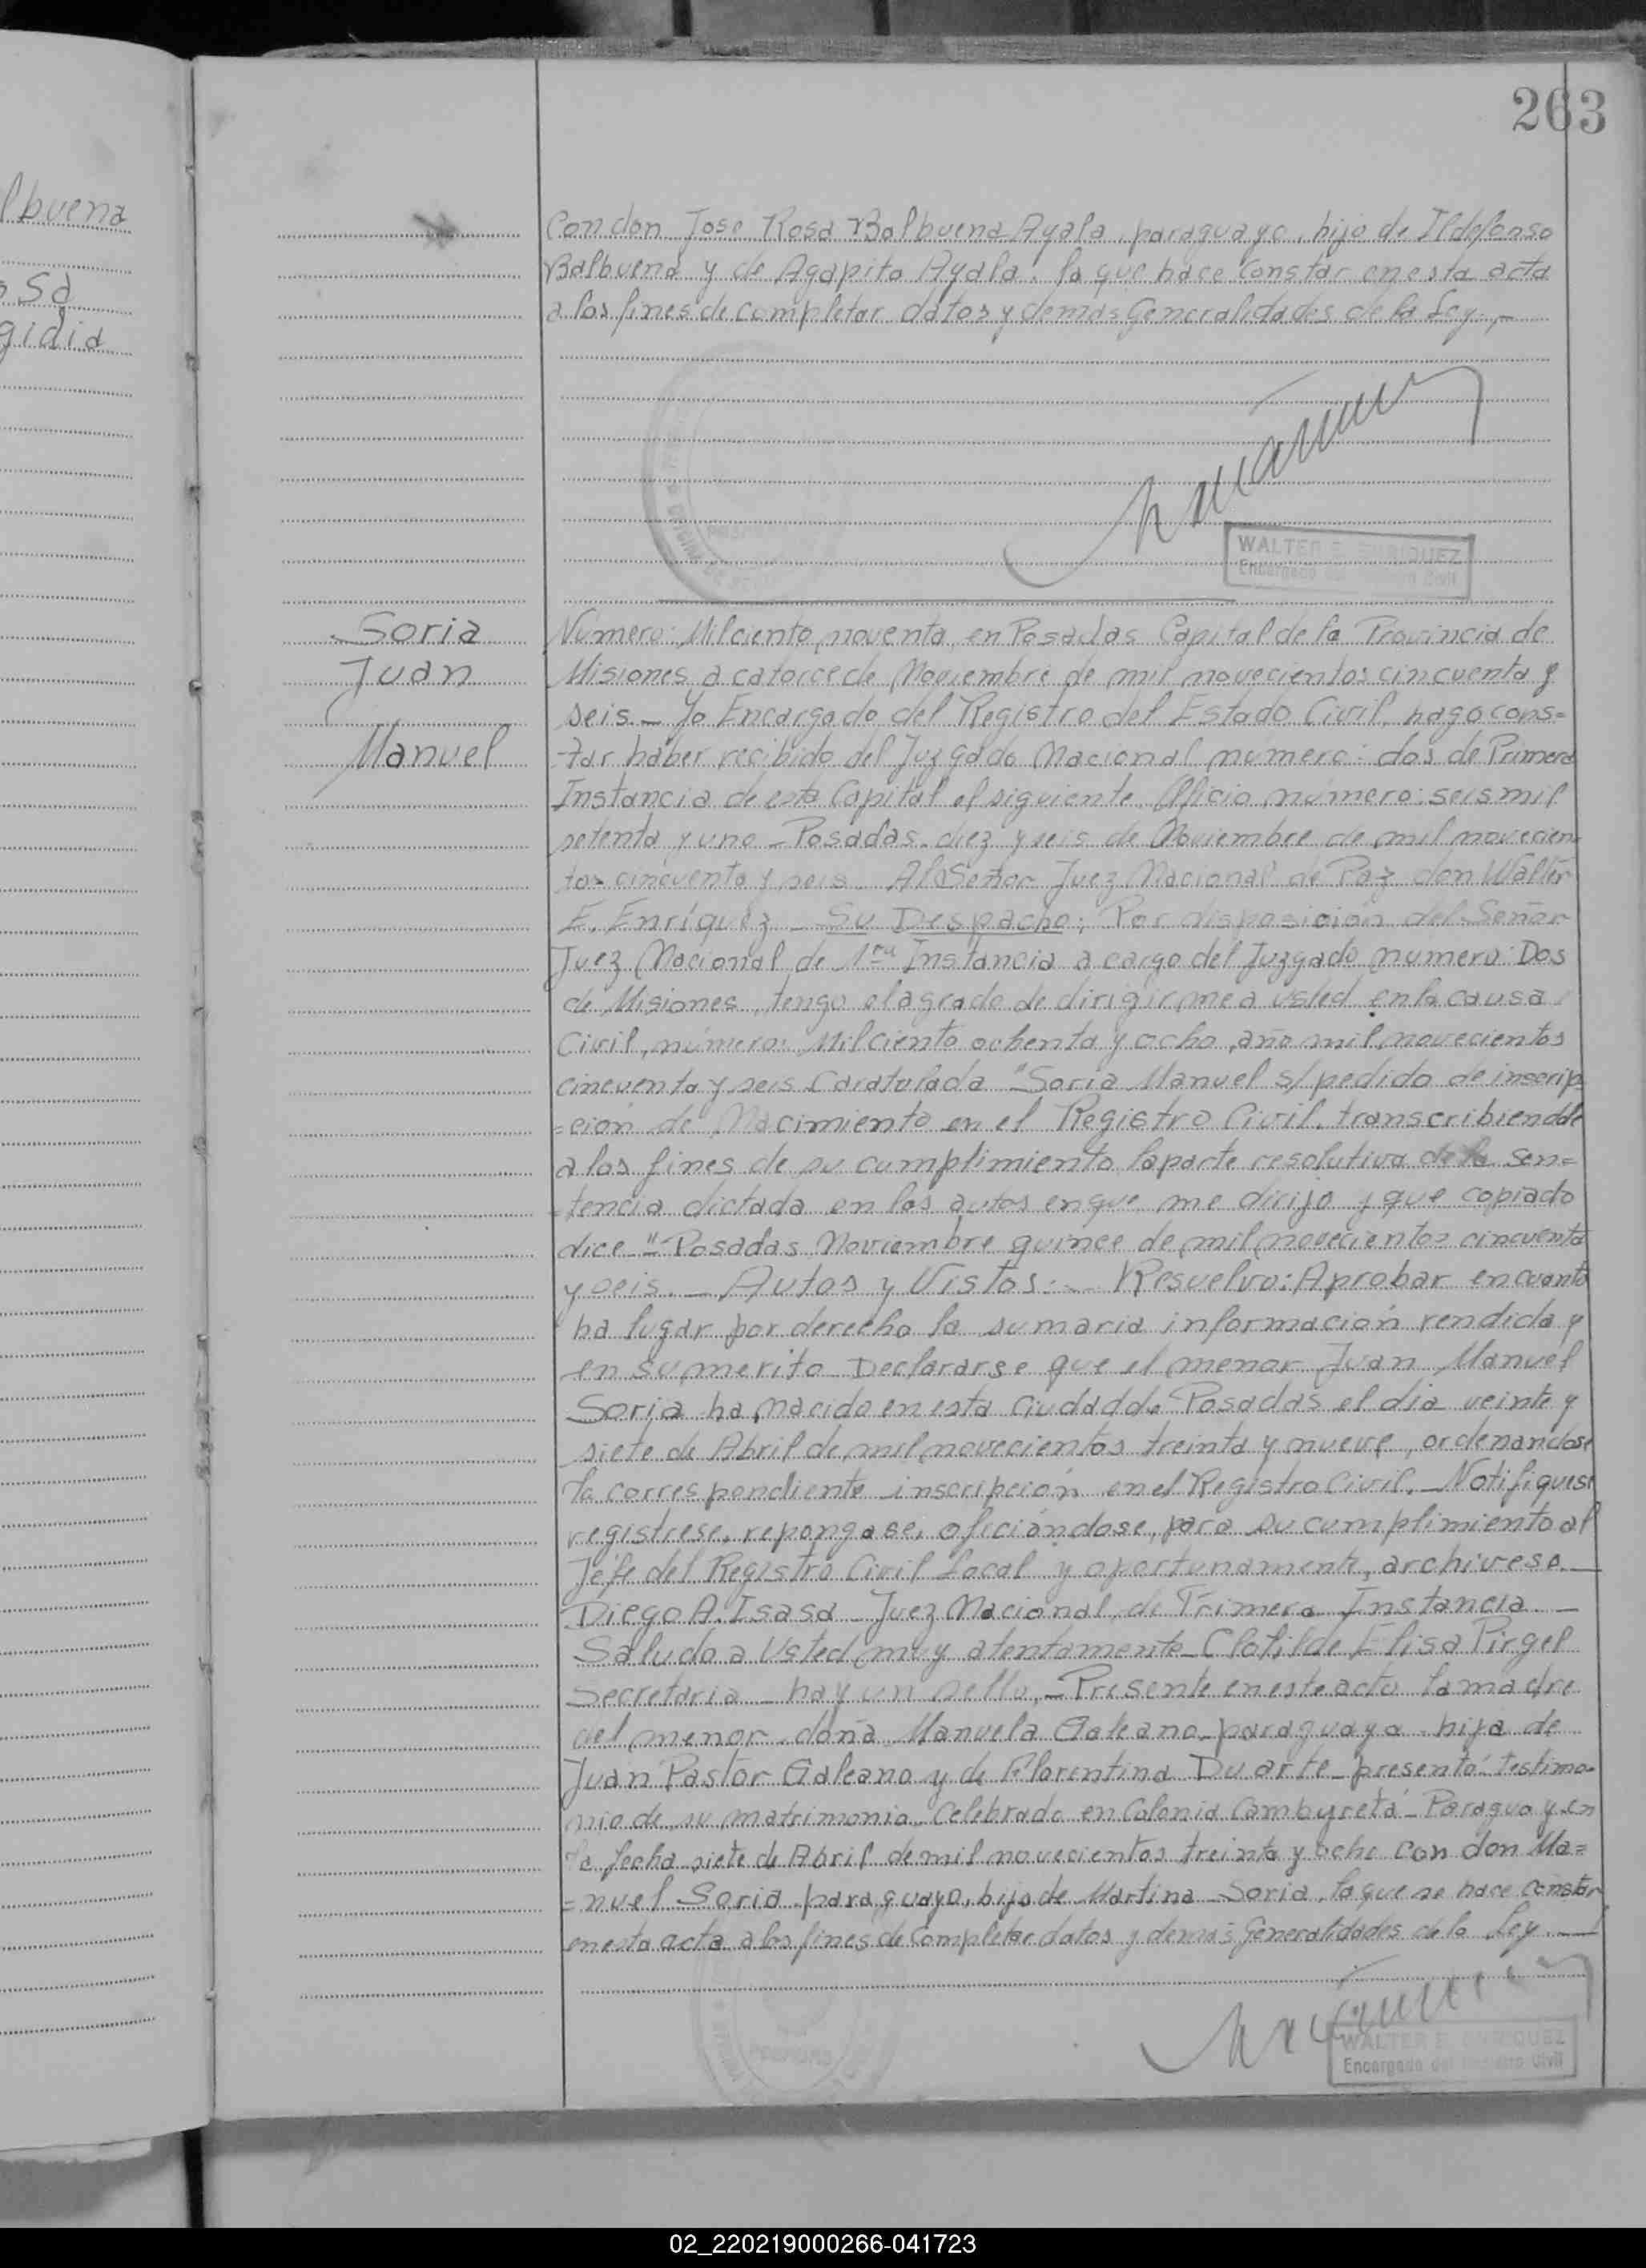 263
lbuena
osa
gidia
Con don Jose Rosa Balbuena Ayala, paraguayo, hijo de Ildefonso
Balbuena y de Agapita Ayala, lo que hace constar en esta acta
a los fines de completar datos y demás Generalidades de la Ley.-
WALTER E. ENRIQUEZ
Encargado del Registro Civil
Soria
Juan
Manuel
Número: Mil ciento noventa, en Posadas Capital de la Provincia de
Misiones a catorce de Noviembre de mil novecientos cincuenta y
seis.- Yo Encargado del Registro del Estado Civil, hago cons=
tar haber recibido del Juzgado Nacional numero: dos de Primera
Instancia de esta Capital el siguiente Oficio número: seis mil
setenta y uno - Posadas, diez y seis de Noviembre de mil novecien
tos cincuenta y seis - Al Señor Juez Nacional de Paz don Walter
E. Enríquez - Su Despacho: Por disposición del Señor
Juez Nacional de 1ra Instancia a cargo del Juzgado numero: Dos
de Misiones, tengo el agrado de dirigirme a usted en la causa
Civil, número: Mil ciento ochenta y ocho, año mil novecientos
cincuenta y seis Caratulada "Soria Manuel s/pedido de inscrip=
=ción de Nacimiento en el Registro Civil, transcribiendole
a los fines de su cumplimiento la parte resolutiva de la sen=
=tencia dictada en los autos en que me dirijo y que copiado
dice "Posadas Noviembre quince de mil novecientos cincuenta
y seis.- Autos y Vistos:- Resuelvo: Aprobar en cuanto
ha lugar por derecho la sumaria información rendida y
en su merito Declararse que el menor Juan Manuel
Soria ha nacido en esta Ciudad de Posadas el día veinte y
siete de Abril de mil novecientos treinta y nueve, ordenandose
la correspondiente inscripción en el Registro Civil.- Notifiquese
registrese, repongase, oficiándose, para su cumplimiento al
Jefe del Registro Civil Local y oportunamente, archivese.-
Diego A. Isasa - Juez Nacional de Primera Instancia.-
Saludo a Usted muy atentamente - Clotilde Elisa Pirgel
Secretaria - hay un sello.- Presente en este acto la madre
del menor, doña Manuela Galeano - paraguaya - hija de
Juan Pastor Galeano y de Florentina Duarte - presentó testimo-
nio de su matrimonio Celebrado en Colonia Cambyretá - Paraguay en
la fecha siete de Abril de mil novecientos treinta y ocho con don Ma=
=nuel Soria paraguayo, hijo de Martina Soria, lo que se hace constar
en esta acta a los fines de Completar datos y demás Generalidades de la Ley.-
WALTER E. ENRIQUEZ
Encargado del Registro Civil
02_220219000266-041723